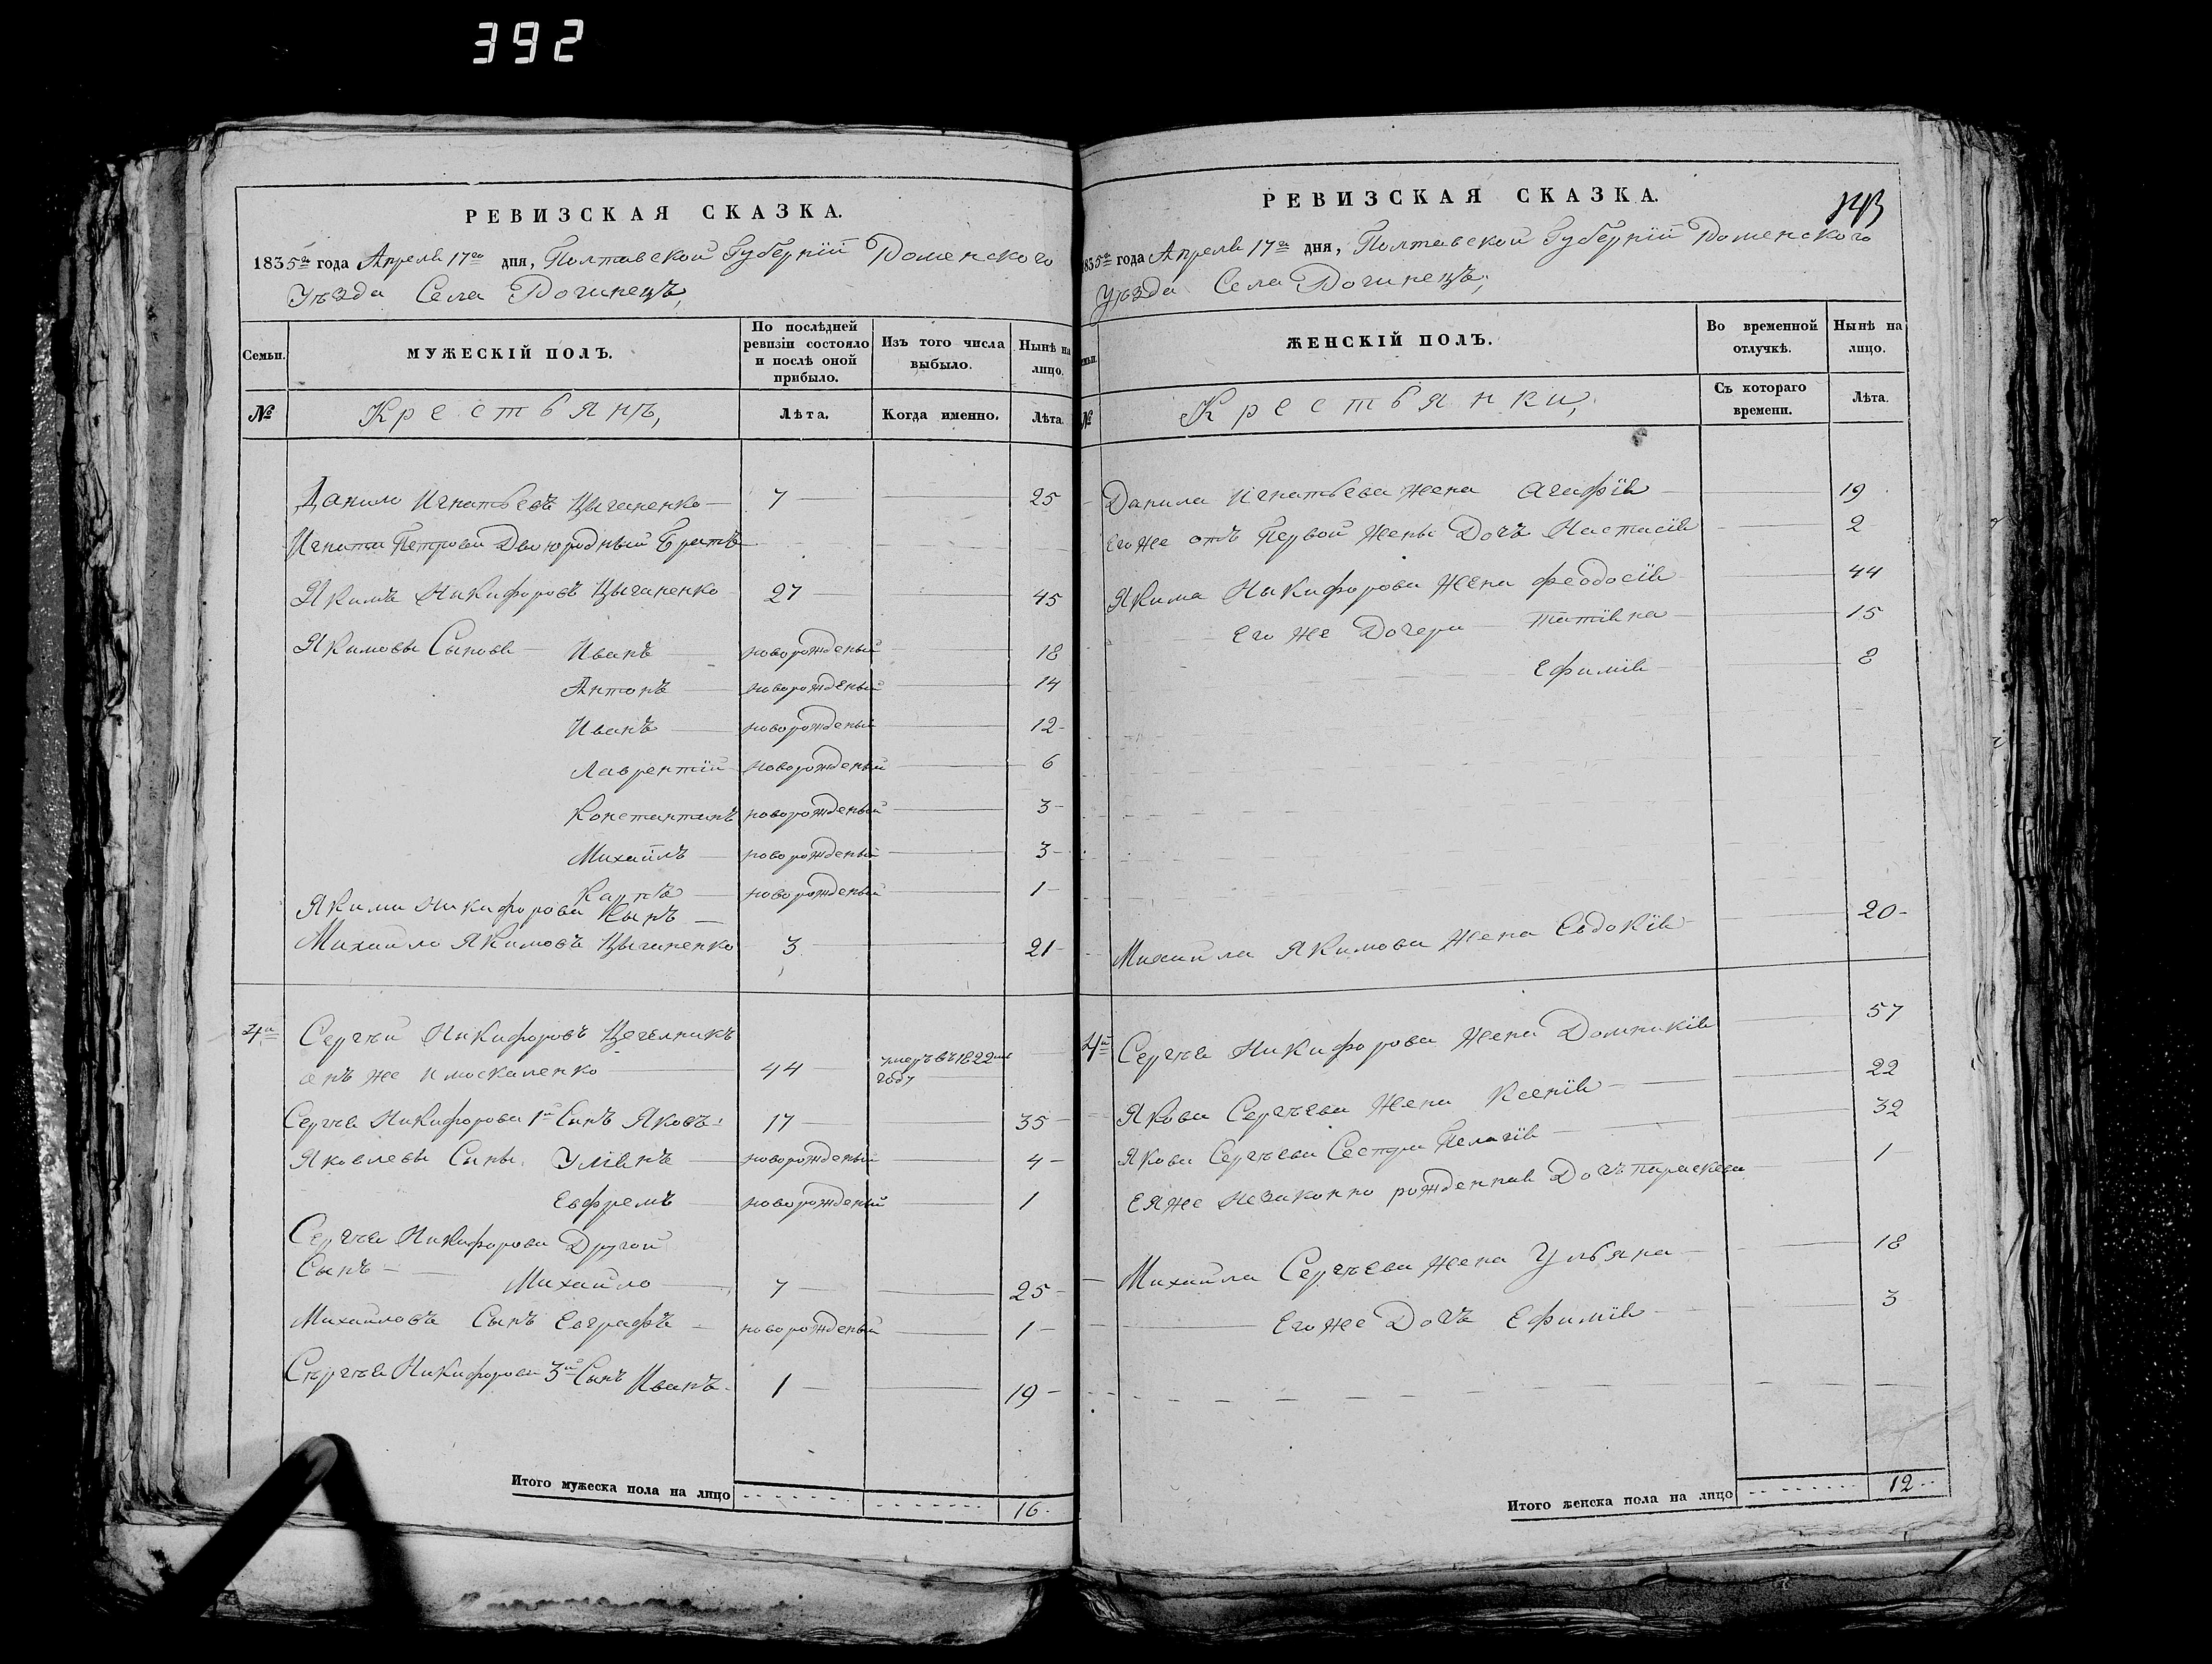 392
РЕВИЗСКАЯ СКАЗКА.
1835го года Апреля 17го дня, Полтавской Губерніи Роменскаго
Уѣзда Села Рогинецъ,
Семьи. МУЖЕСКІЙ ПОЛЪ. По послѣдней ревизіи состояло и послѣ оной прибыло. Изъ того числа выбыло. Нынѣ на лицо.
№ Крестьянъ, Лѣта. Когда именно. Лѣта.
Данило Игнатьевъ Цыганенко 7 25
Игната Петрова Двоюродный Братъ
Якимъ Никифоровъ Цыганенко 27 45
Якимовы Сыновя Иванъ новорожденый 18
Антонъ новорожденый 14
Иванъ новорожденый 12
Лаврентій новорожденый 6
Константинъ новорожденый 3
Михайлъ новорожденый 3
Карпъ новорожденый 1
Якима Никифорова Сынъ
Михайло Якимовъ Цыганенко 3 21
4й Сергѣй Никифоровъ Цегелникъ
онъ же и москаленко 44 умеръ въ 1822м году
Сергѣя Никифорова 1й Сынъ Яковъ 17 35
Яковлевы Сыны Уліянъ новорожденый 4
Евфремъ новорожденый 1
Сергѣя Никифорова Другой
Сынъ Михайло 7 25
Михайловъ Сынъ Евграфъ новорожденый 1
Сергѣя Никифорова 3й Сынъ Иванъ 1 19
Итого мужеска пола на лицо 16
РЕВИЗСКАЯ СКАЗКА.
143
1835го года Апреля 17го дня, Полтавской Губерніи Роменскаго
Уѣзда Села Рогинецъ,
Семьи. ЖЕНСКІЙ ПОЛЪ. Во временной отлучкѣ. Нынѣ на лицо.
№ Крестьянки, Съ котораго времени. Лѣта.
Данила Игнатьева жена Агафія 19
Его же отъ Первой жены Дочъ Настасія 2
Якима Никифорова жена Феодосія 44
Его же Дочери Татіяна 15
Ефимія 8
Михайла Якимова жена Евдокія 20
4й Сергѣя Никифорова жена Домникія 57
Якова Сергѣева жена Ксенія 22
Якова Сергѣева Сестра Пелагія 32
Ея же Незаконно рожденная Дочъ параскева 1
Михайла Сергѣева жена Ульяна 18
Его же Дочъ Ефимія 3
Итого женска пола на лицо 12